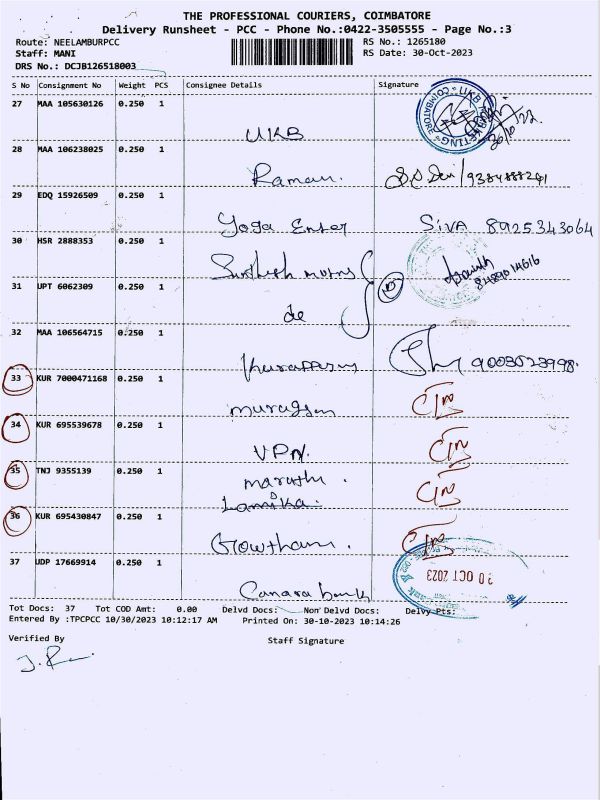 THE PROFESSIONAL COURIERS, COIMBATORE
Delivery Runsheet - PCC - Phone No.:0422-3505555 - Page No.:3
Route: NEELAMBURPCC RS No.: 1265180
Staff: MANI RS Date: 30-Oct-2023
DRS No.: DCJB126518003
S No Consignment No Weight PCS Consignee Details Signature
27 MAA 105630126 0.250 1
UKB
28 MAA 106238025 0.250 1
Raman. 9384888241
29 EDQ 15926509 0.250 1
Yoga Enter SIVA 8925343064
30 HSR 2888353 0.250 1
8489014616
31 UPT 6062309 0.250 1
do
32 MAA 106564715 0.250 1
9003523998.
33 KUR 7000471168 0.250 1
murugan
34 KUR 695539678 0.250 1
VPN.
35 TNJ 9355139 0.250 1
maruthi
36 KUR 695430847 0.250 1
Gowtham.
37 UDP 17669914 0.250 1
Canara bank
30 OCT 2023
Tot Docs: 37 Tot COD Amt: 0.00 Delvd Docs: Non Delvd Docs: Delvy Pts:
Entered By :TPCPCC 10/30/2023 10:12:17 AM Printed On: 30-10-2023 10:14:26
Verified By Staff Signature